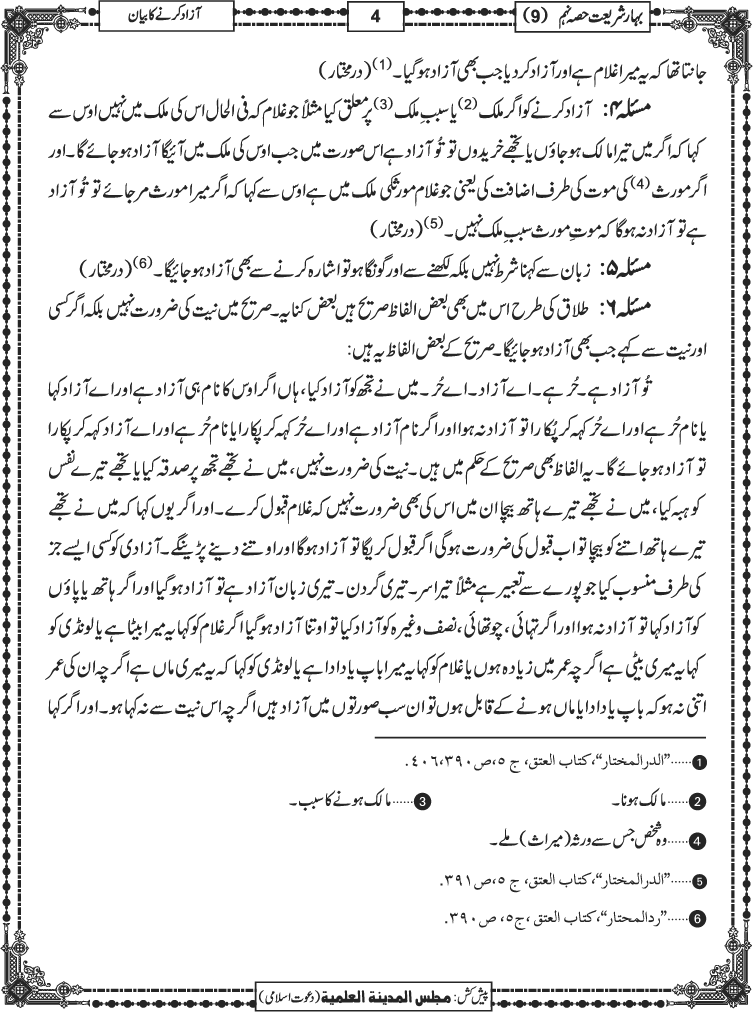 بہارِ شریعت حصہ نہم (9)
4
آزاد کرنے کا بیان
جانتا تھا کہ یہ میرا غلام ہے اور آزاد کر دیا جب بھی آزاد ہوگیا۔(1) (درمختار)
مسئلہ ۴: آزاد کرنے کو اگر ملک(2) یا سببِ ملک(3) پر معلق کیا مثلاً جو غلام کہ فی الحال اس کی ملک میں نہیں اوس سے
کہا کہ اگر میں تیرا مالک ہو جاؤں یا تجھے خریدوں تو تُو آزاد ہے اس صورت میں جب اوس کی ملک میں آئیگا آزاد ہو جائے گا۔ اور
اگر مورث(4) کی موت کی طرف اضافت کی یعنی جو غلام مورث کی ملک میں ہے اوس سے کہا کہ اگر میرا مورث مر جائے تو تُو آزاد
ہے تو آزاد نہ ہوگا کہ موتِ مورث سببِ ملک نہیں۔(5) (درمختار)
مسئلہ ۵: زبان سے کہنا شرط نہیں بلکہ لکھنے سے اور گونگا ہو تو اشارہ کرنے سے بھی آزاد ہو جائیگا۔(6) (درمختار)
مسئلہ ۶: طلاق کی طرح اس میں بھی بعض الفاظ صریح ہیں بعض کنایہ۔ صریح میں نیت کی ضرورت نہیں بلکہ اگر کسی
اور نیت سے کہے جب بھی آزاد ہو جائیگا۔ صریح کے بعض الفاظ یہ ہیں:
تُو آزاد ہے۔ حُر ہے۔ اے آزاد۔ اے حُر۔ میں نے تجھ کو آزاد کیا، ہاں اگر اوس کا نام ہی آزاد ہے اور اے آزاد کہا
یا نام حُر ہے اور اے حُر کہہ کر پُکارا تو آزاد نہ ہوا اور اگر نام آزاد ہے اور اے حُر کہہ کر پکارا یا نام حُر ہے اور اے آزاد کہہ کر پکارا
تو آزاد ہو جائے گا۔ یہ الفاظ بھی صریح کے حکم میں ہیں۔ نیت کی ضرورت نہیں، میں نے تجھے تجھ پر صدقہ کیا یا تجھے تیرے نفس
کو ہبہ کیا، میں نے تجھے تیرے ہاتھ بیچا ان میں اس کی بھی ضرورت نہیں کہ غلام قبول کرے۔ اور اگر یوں کہا کہ میں نے تجھے
تیرے ہاتھ اتنے کو بیچا تو اب قبول کی ضرورت ہوگی اگر قبول کریگا تو آزاد ہوگا اور اوتنے دینے پڑینگے۔ آزادی کو کسی ایسے جز
کی طرف منسوب کیا جو پورے سے تعبیر ہے مثلاً تیرا سر۔ تیری گردن۔ تیری زبان آزاد ہے تو آزاد ہوگیا اور اگر ہاتھ یا پاؤں
کو آزاد کہا تو آزاد نہ ہوا اور اگر تہائی، چوتھائی، نصف وغیرہ کو آزاد کیا تو اوتنا آزاد ہوگیا اگر غلام کو کہا یہ میرا بیٹا ہے یا لونڈی کو
کہا یہ میری بیٹی ہے اگرچہ عمر میں زیادہ ہوں یا غلام کو کہا یہ میرا باپ یا دادا ہے یا لونڈی کو کہا کہ یہ میری ماں ہے اگرچہ ان کی عمر
اتنی نہ ہو کہ باپ یا دادا یا ماں ہونے کے قابل ہوں تو ان سب صورتوں میں آزاد ہیں اگرچہ اس نیت سے نہ کہا ہو۔ اور اگر کہا
1 ......"الدرالمختار"، کتاب العتق، ج ٥، ص ٣٩٠،٤٠٦.
2 ...... مالک ہونا۔ 3 ...... مالک ہونے کا سبب۔
4 ...... وہ شخص جس سے ورثہ (میراث) ملے۔
5 ......"الدرالمختار"، کتاب العتق، ج ٥، ص ٣٩١.
6 ......"ردالمحتار"، کتاب العتق، ج٥، ص ٣٩٠.
پیش کش: مجلس المدینۃ العلمیۃ (دعوت اسلامی)